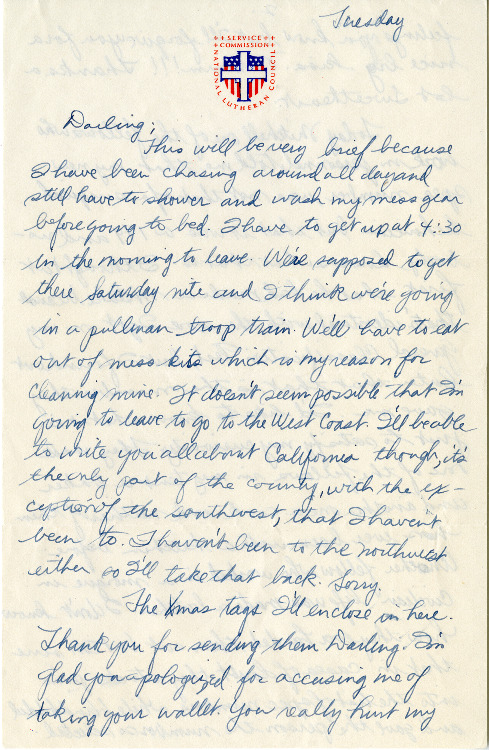 Tuesday
SERVICE
COMMISSION
NATIONAL LUTHERAN COUNCIL
Darling;
This will be very brief because
I have been chasing around all day and
still have to shower and wash my mess gear
before going to bed. I have to get up at 4:30
in the morning to leave. We're supposed to get
there Saturday nite and I think we're going
in a pullman troop train. We'll have to eat
out of mess kits which is my reason for
cleaning mine. It doesn't seem possible that I'm
going to leave to go to the West Coast. I'll be able
to write you all about California though, it's
the only part of the country, with the ex-
ception of the southwest, that I haven't
been to. I haven't been to the northwest
either so I'll take that back. Sorry.
The Xmas tags I'll enclose in here.
Thank you for sending them Darling. I'm
glad you apologized for accusing me of
taking your wallet. You really hurt my